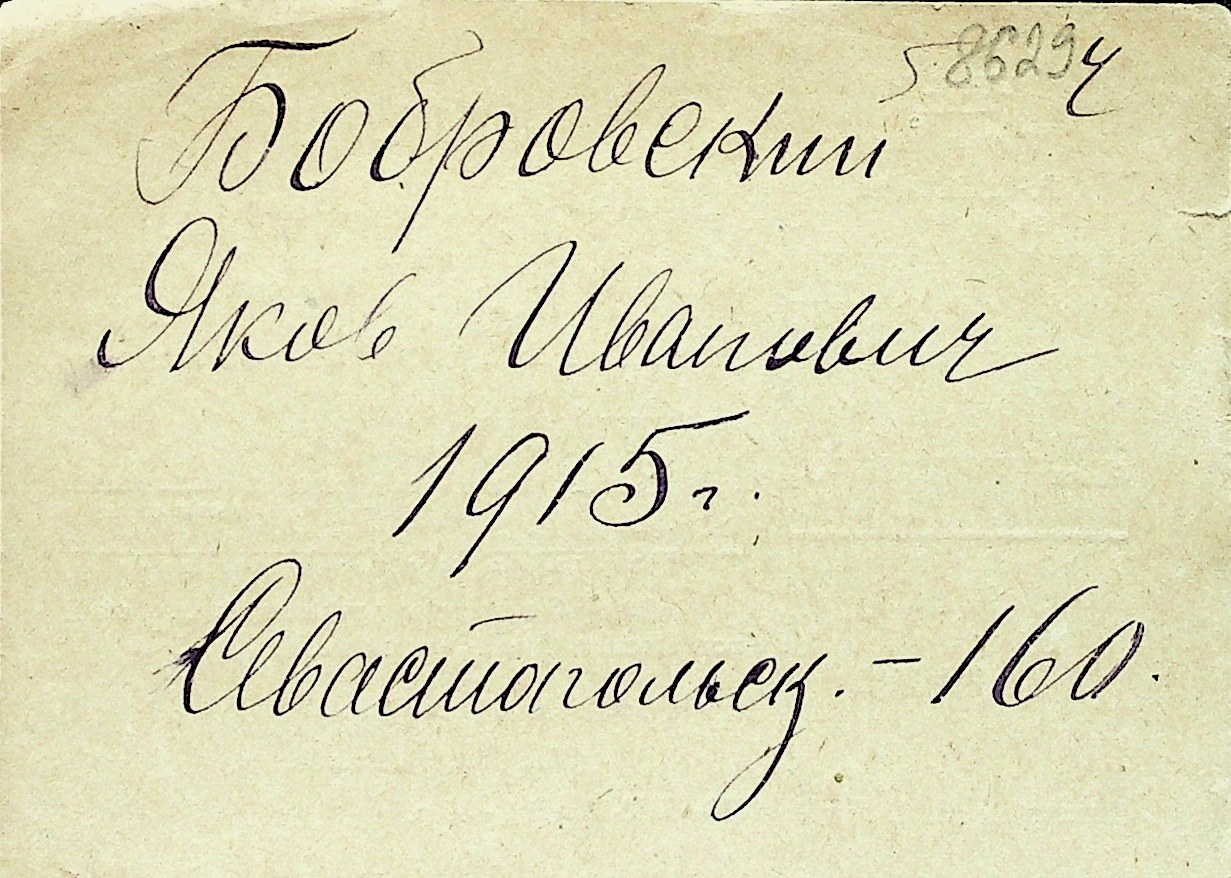 86294
Бобровский
Яков Иванович
1915 г.
Севастопольск. - 160.